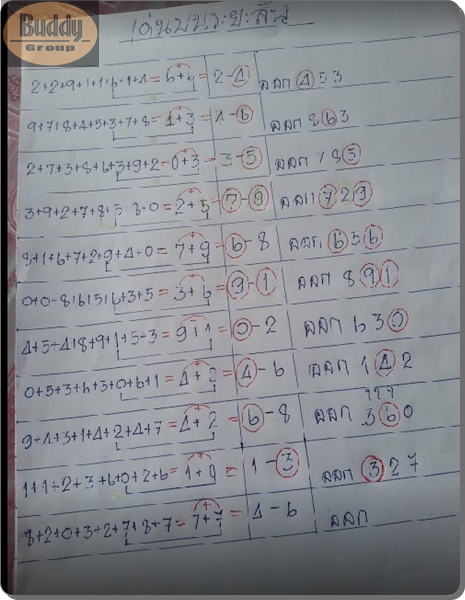 Buddy
Group
เด่นบนระยะสั้น
2+2+9+1+1+6+1+4=6+6=2-4 ออก 453
9+7+8+4+5+3+7+8=1+3=4-6 ออก 863
2+7+3+8+6+3+9+2=0+3=3-5 ออก 785
3+9+2+7+8+5+8+0=2+5=7-9 ออก 729
8+1+6+7+2+9+4+0=7+9=6-8 ออก 656
0+0+8+6+5+6+3+5=3+6=9-1 ออก 891
4+5+4+8+9+1+5+3=9+1=0-2 ออก 630
0+5+3+6+3+0+6+1=4+0=4-6 ออก 142
9+4+3+1+4+2+4+7=4+2=6-8 ออก 360
1+1+2+3+6+0+2+6=1+9=1-3 ออก 327
8+2+0+3+2+7+8+7=7+7=4-6 ออก